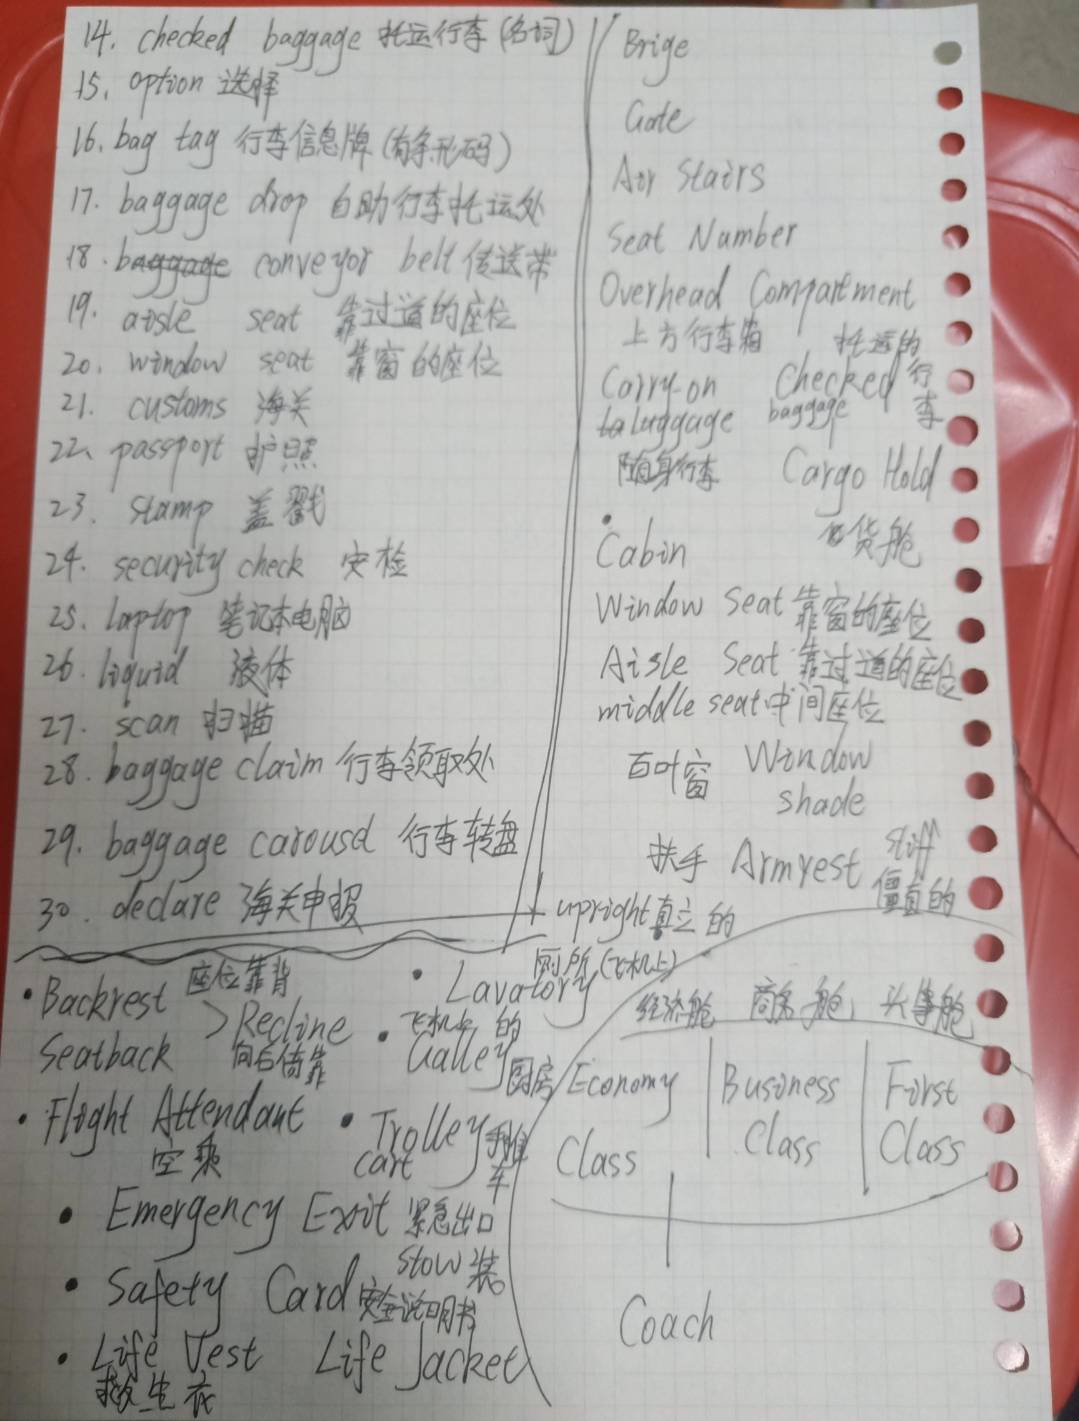 14. checked baggage 托运行李(名词)
15. option 选择
16. bag tag 行李信息牌(有条形码)
17. baggage drop 自助行李托运处
18. baggage conveyor belt 传送带
19. aisle seat 靠过道的座位
20. window seat 靠窗的座位
21. customs 海关
22. passport 护照
23. stamp 盖戳
24. security check 安检
25. laptop 笔记本电脑
26. liquid 液体
27. scan 扫描
28. baggage claim 行李领取处
29. baggage carousel 行李转盘
30. declare 海关申报
Brige
Gate
Air Stairs
Seat Number
Overhead Compartment
上方行李箱
Carry-on
luggage
随身行李
Checked
baggage
托运的
行
李
Cargo Hold
货舱
• Cabin
Window Seat 靠窗的座位
Aisle Seat 靠过道的座位
middle seat 中间座位
百叶窗 Window
shade
扶手 Armrest
stiff
僵直的
upright 直立的
• Backrest 座位靠背
Seatback
> Recline
向后倚靠
• Flight Attendant
空乘
• Lavatory
厕所(飞机上)
• Galley
飞机上的
厨房
• Trolley
cart
手推
车
• Emergency Exit 紧急出口
stow 装
• Safety Card 安全说明书
• Life Vest Life Jacket
救生衣
经济舱 商务舱, 头等舱
Economy | Business | First
Class Class Class
Coach